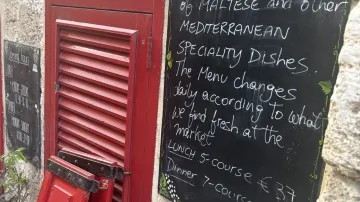 of MALTESE and other
MEDITERRANEAN
SPECIALITY DISHES.
The Menu changes
daily according to what
we find fresh at the
market.
LUNCH 5-COURSE €37
Dinner 7-course